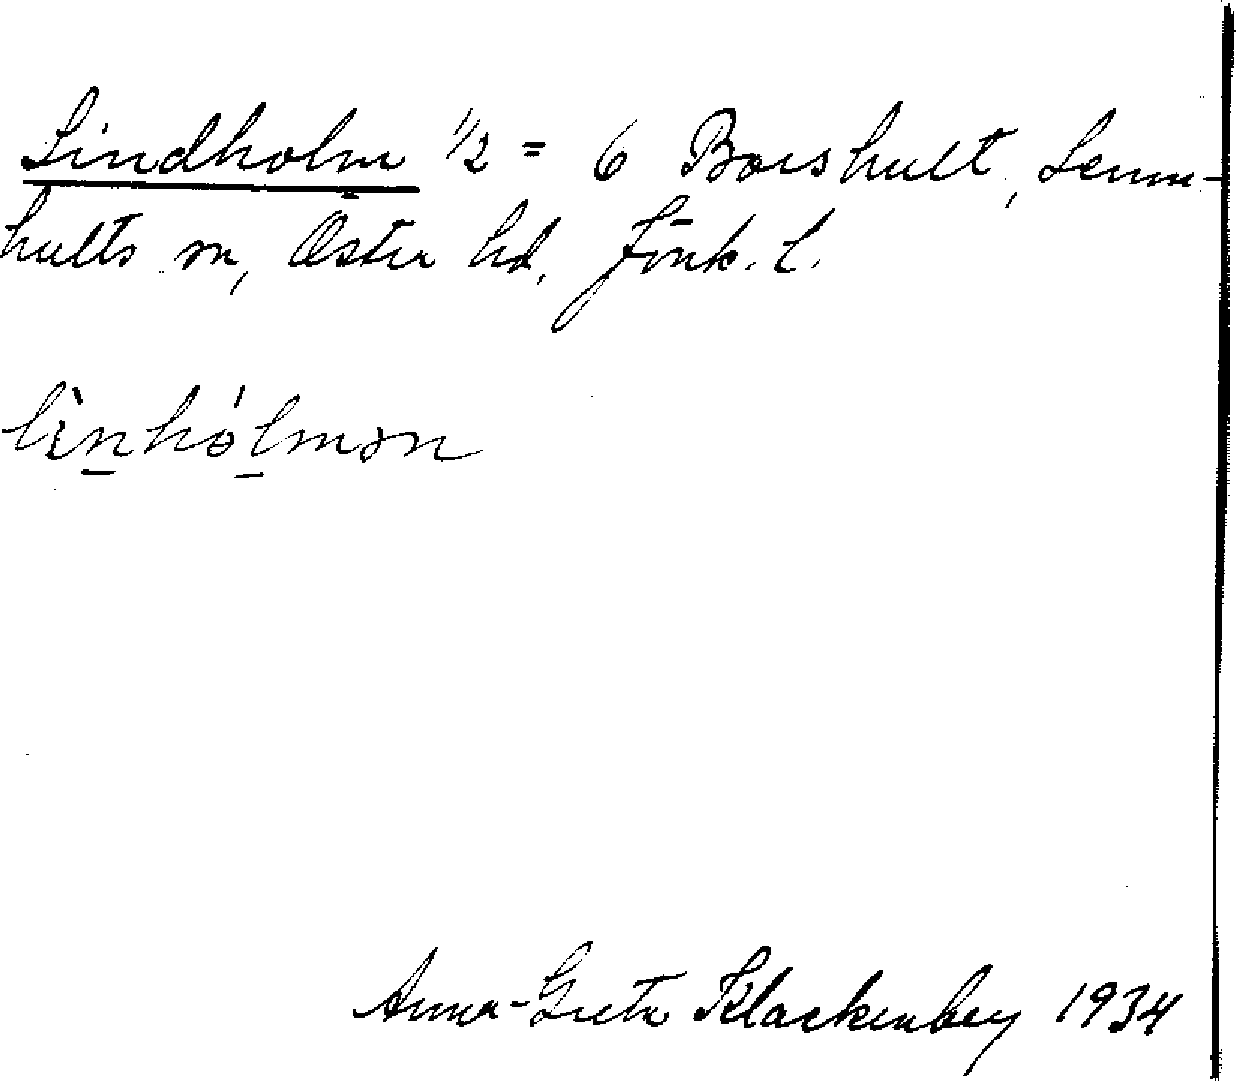 Lindholm 1/2 = 6 Boarshult, Lemn-
hults sn, Östra hd, Jönk. l.
lìnhólmən
Anna-Greta Klackenberg 1934